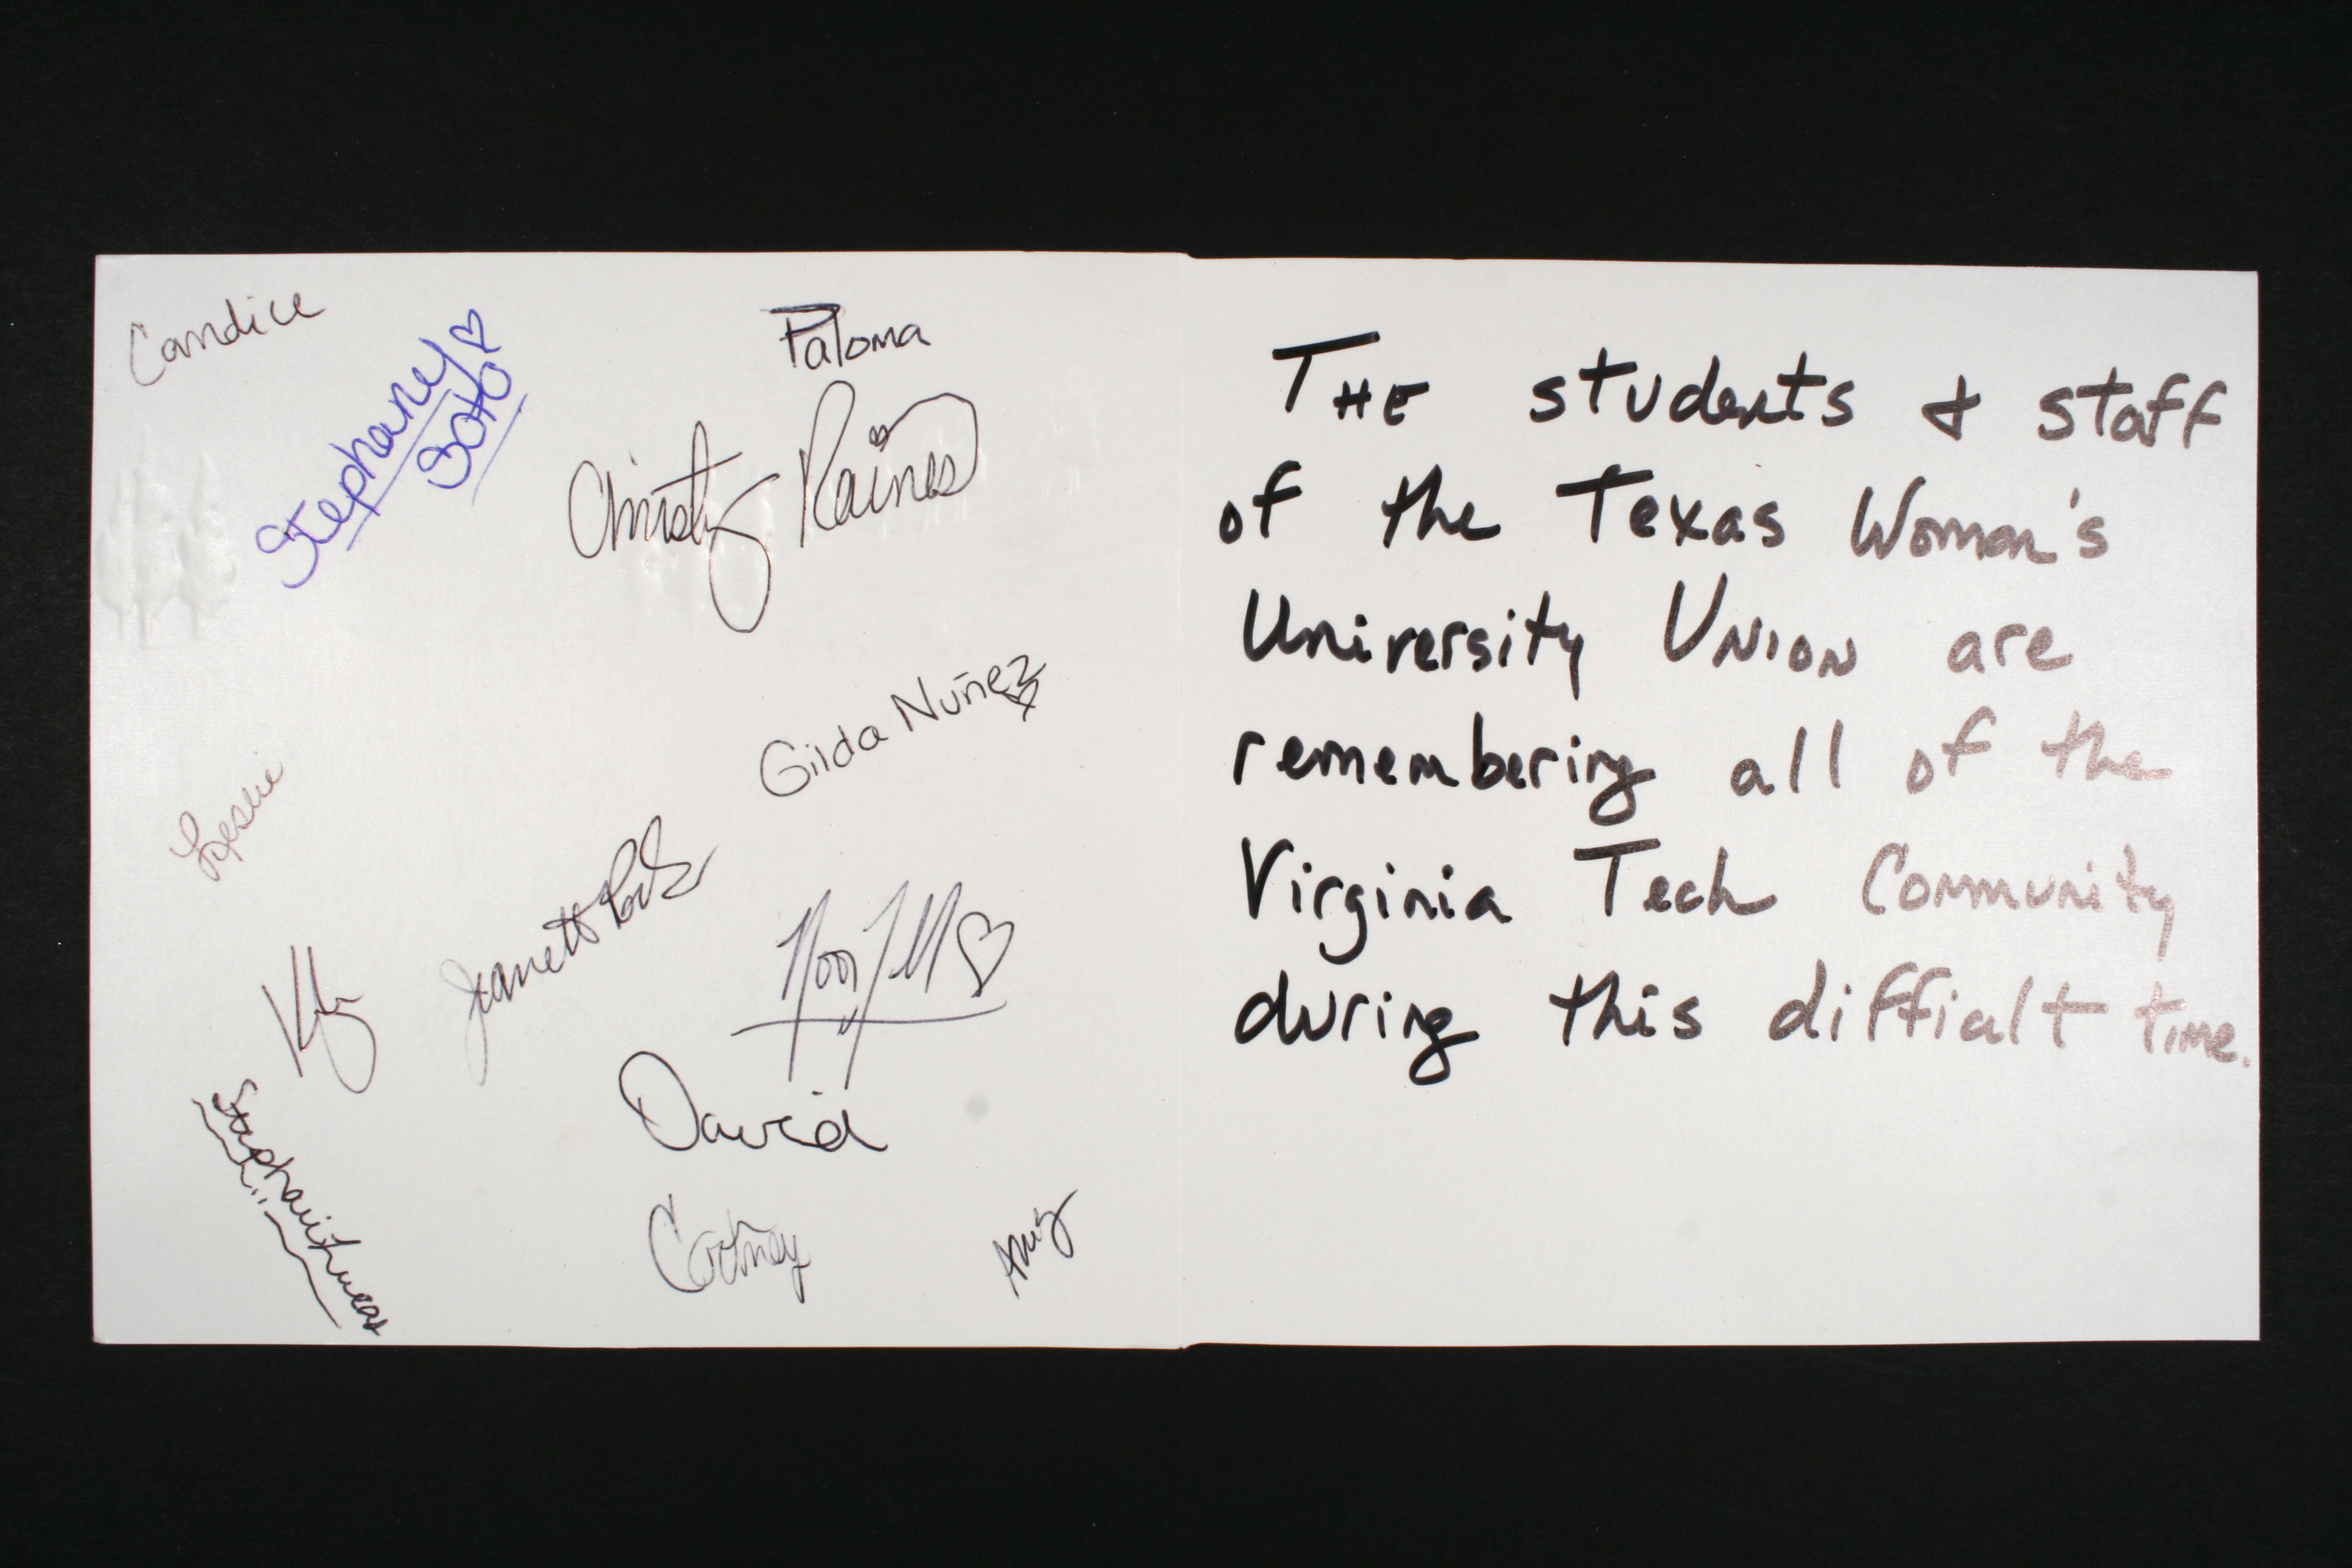 Candice
Stephany
Soto
Paloma
Christy Raines
Gilda Nuñez
Leslie
Jeanett
David
Stephanie Lucas
Cortney
Amy
THE students & staff
of the Texas Woman's
University Union are
remembering all of the
Virginia Tech Community
during this difficult time.